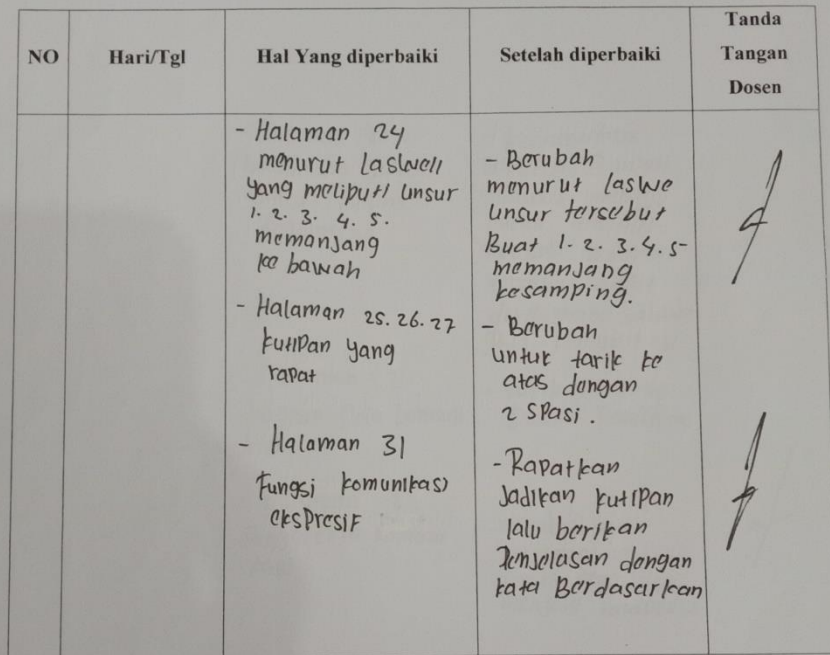 NO
Hari/Tgl
Hal Yang diperbaiki
Setelah diperbaiki
Tanda
Tangan
Dosen
- Halaman 24
menurut Laslwell
yang meliputi unsur
1. 2. 3. 4. 5.
memanjang
ke bawah
- Halaman 25. 26. 27
kutipan yang
rapat
- Halaman 31
Fungsi komunikasi
ekspresif
- Berubah
menurut laswe
unsur tersebut
Buat 1. 2. 3. 4. 5
memanjang
kesamping.
- Berubah
untuk tarik ke
atas dengan
2 spasi.
- Rapatkan
Jadikan kutipan
lalu berikan
Penjelasan dengan
kata Berdasarkan